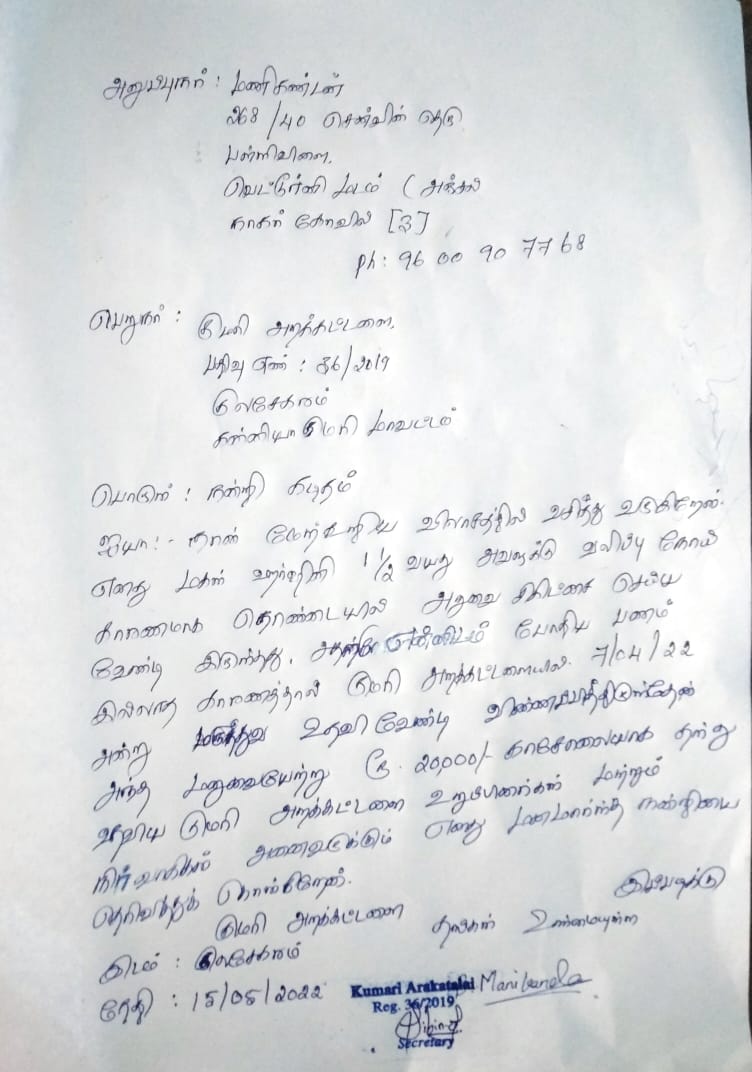 அனுப்புநர் : மணிகண்டன்
268/40 தெரு
பள்ளிவிளை,
வெட்டூர்னி மடம் ( அஞ்சல்
நாகர் கோவில் [3]
Ph : 96 00 90 77 68
பெறுநர் : குமரி அறக்கட்டளை,
பதிவு எண் : 36/2019
குலசேகரம்
கன்னியாகுமரி மாவட்டம்
பொருள் : நன்றி கடிதம்
ஐயா:- நான் மேற்கூறிய விலாசத்தில் வசித்து வருகிறேன்.
எனது மகள் 1 1/2 வயது அவளுக்கு வலிப்பு நோய்
காரணமாக தொண்டையில் அறுவை சிகிட்சை செய்ய
வேண்டி இருந்தது. என்னிடம் போதிய பணம்
இல்லாத காரணத்தால் குமரி அறக்கட்டளையில் 7/04/22
அன்று மருத்துவ உதவி வேண்டி விண்ணப்பித்திருந்தேன்
அந்த மனுவையேற்று Rs. 20,000/- காசோலையாக தந்து
உதவிய குமரி அறக்கட்டளை உறுப்பினர்கள் மற்றும்
நிர்வாகிகள் அனைவருக்கும் எனது மனமார்ந்த நன்றியை
தெரிவித்துக் கொள்கிறேன்.
இப்படிக்கு
குமரி அறக்கட்டளை தங்கள் உண்மையுள்ள
இடம் : குலசேகரம்
தேதி : 15/05/2022
Kumari Arakatalai
Reg. 36/2019
Secretary